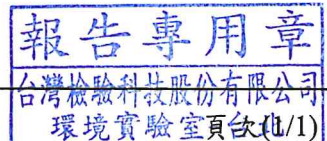 報告專用章
台灣檢驗科技股份有限公司
環境實驗室台北
頁次(1/1)